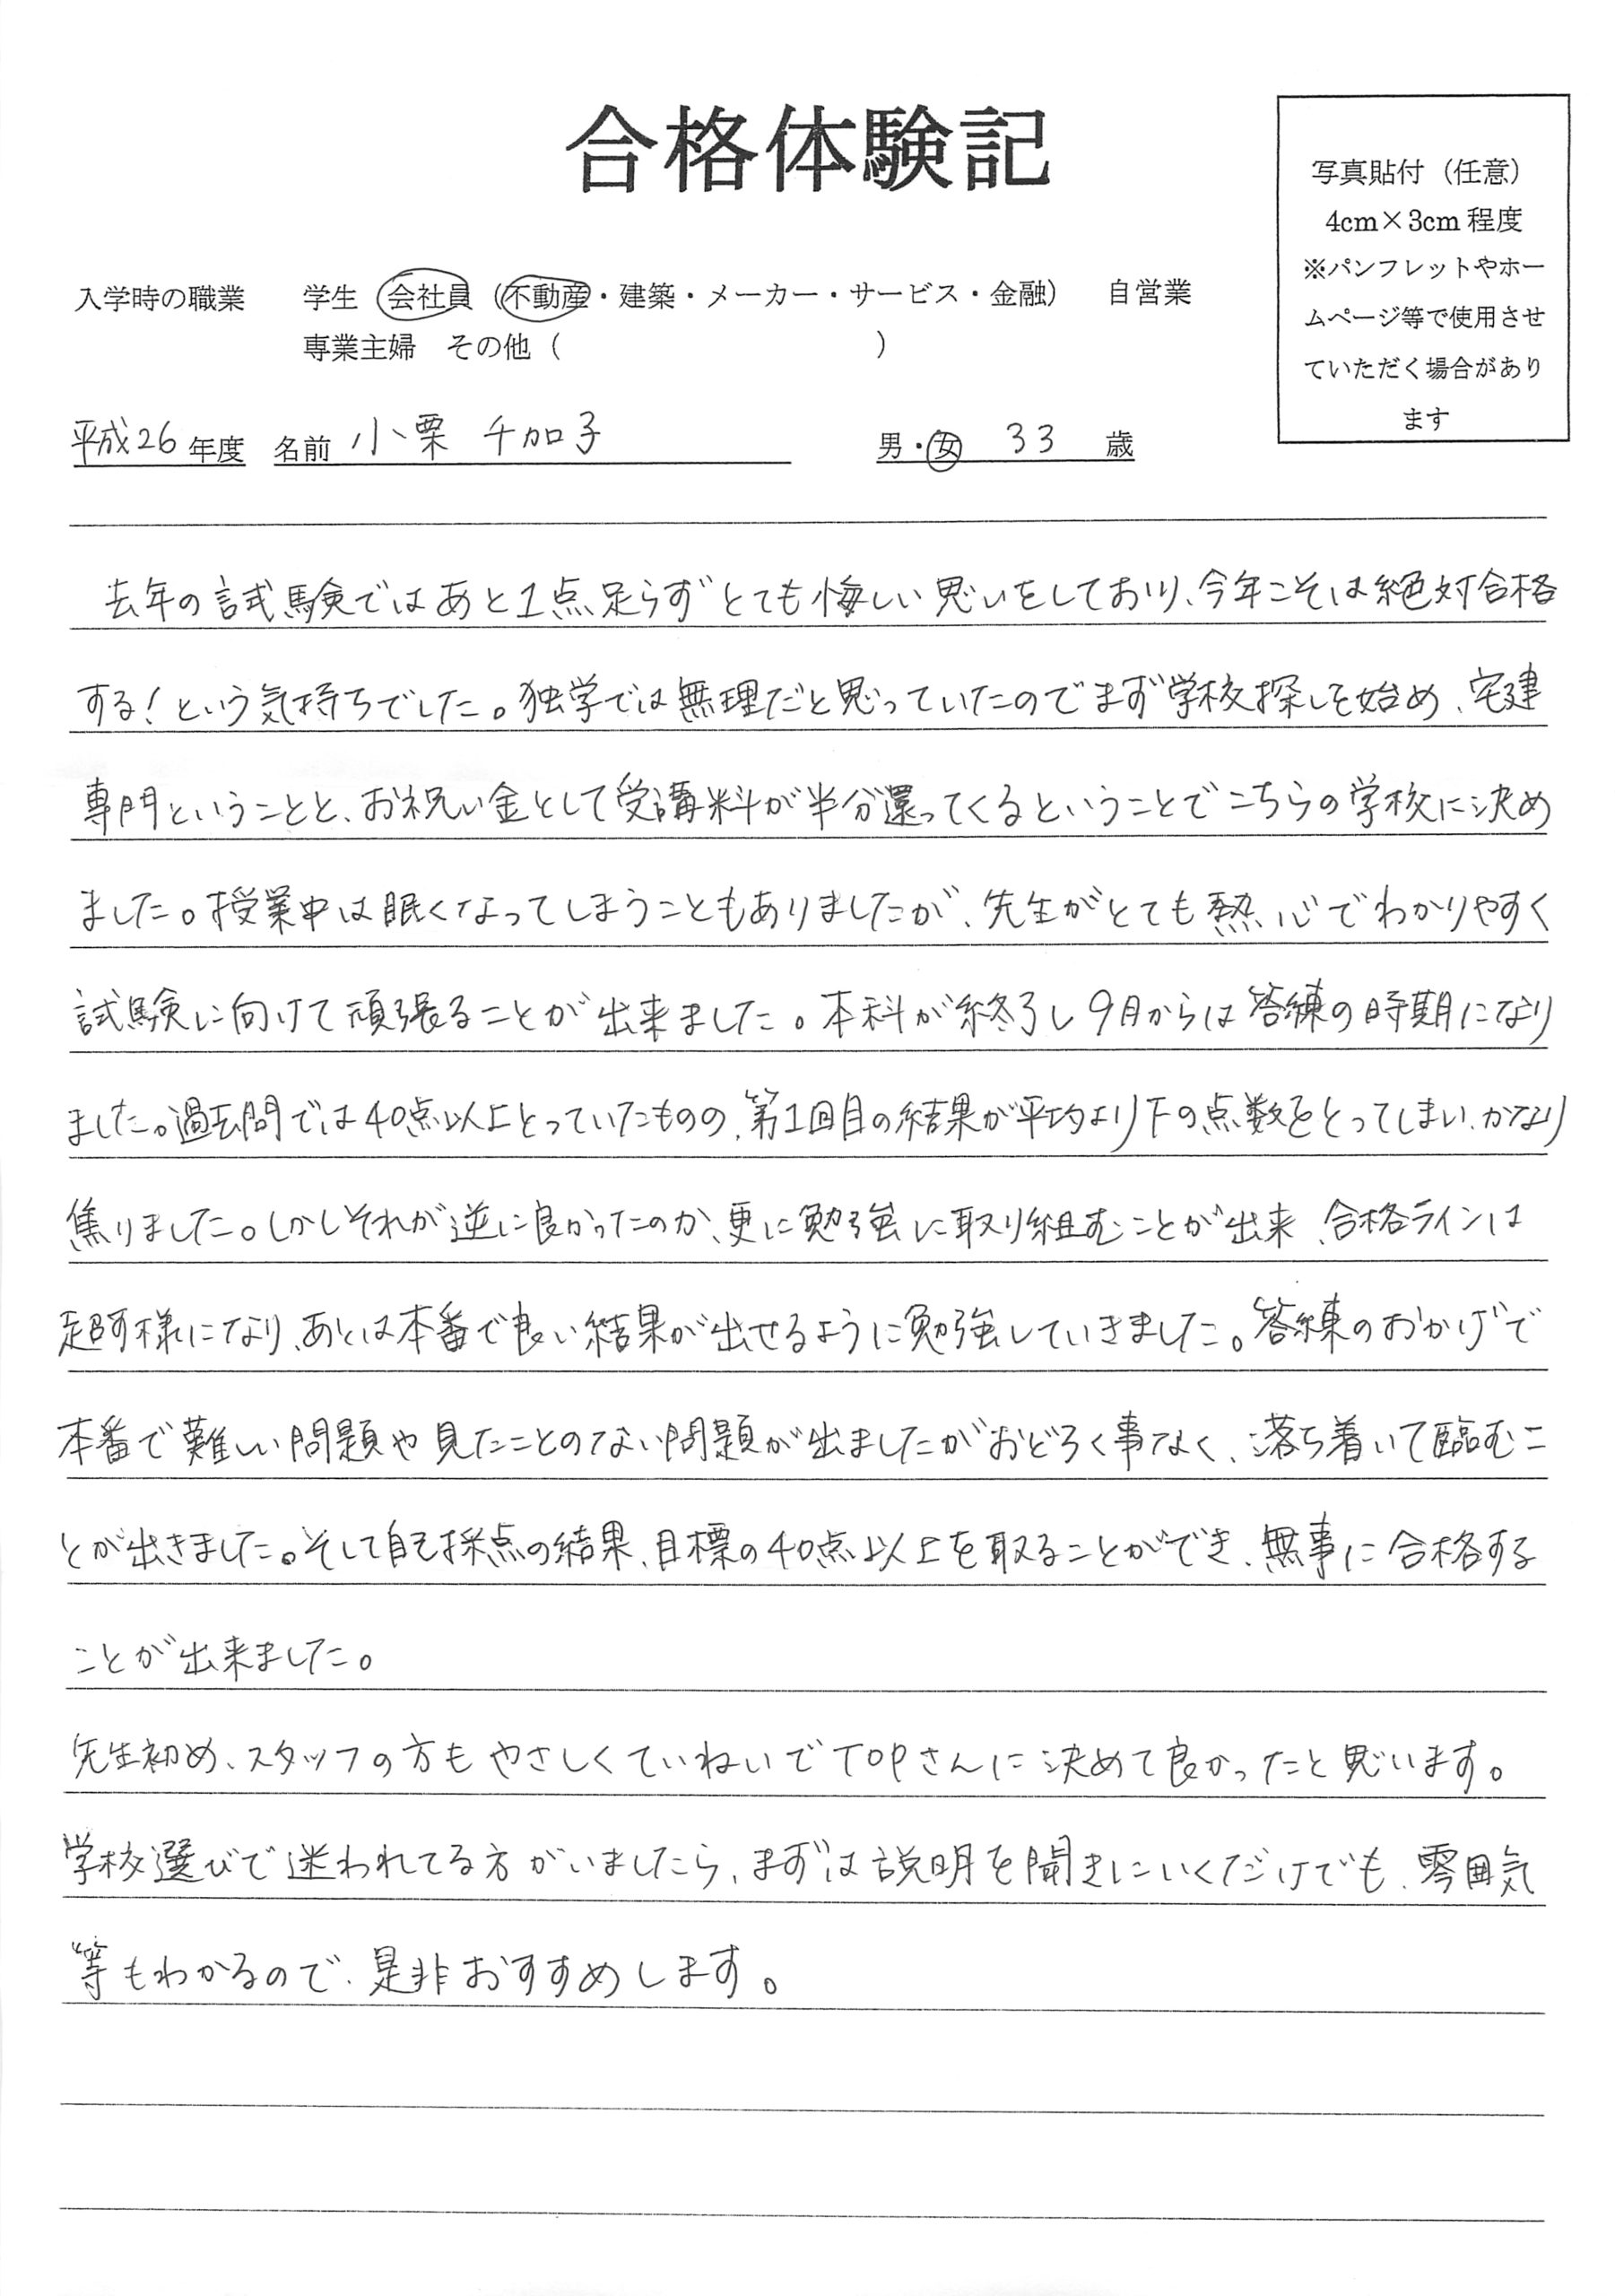 合格体験記
写真貼付（任意）
4cm×3cm 程度
※パンフレットやホー
ムページ等で使用させ
ていただく場合があり
ます
入学時の職業　学生　会社員（不動産・建築・メーカー・サービス・金融）　自営業
専業主婦　その他（　　　　　　　　　　）
平成26年度　名前　小栗　千加子　男・女　33　歳
去年の試験ではあと1点足らずとても悔しい思いをしており、今年こそは絶対合格
する！という気持ちでした。独学では無理だと思っていたのでまず学校探しを始め、宅建
専門ということと、お祝い金として受講料が半分還ってくるということでこちらの学校に決め
ました。授業中は眠くなってしまうこともありましたが、先生がとても熱心でわかりやすく
試験に向けて頑張ることが出来ました。本科が終了し9月からは答練の時期になり
ました。過去問では40点以上とっていたものの、第1回目の結果が平均より下の点数をとってしまい、かなり
焦りました。しかしそれが逆に良かったのか、更に勉強に取り組むことが出来、合格ラインは
超す様になり、あとは本番で良い結果が出せるように勉強していきました。答練のおかげで
本番で難しい問題や見たことのない問題が出ましたがおどろく事なく、落ち着いて臨むこ
とが出きました。そして自己採点の結果、目標の40点以上を取ることができ、無事に合格する
ことが出来ました。
先生初め、スタッフの方もやさしくていねいでTOPさんに決めて良かったと思います。
学校選びで迷われてる方がいましたら、まずは説明を聞きにいくだけでも、雰囲気
等もわかるので、是非おすすめします。